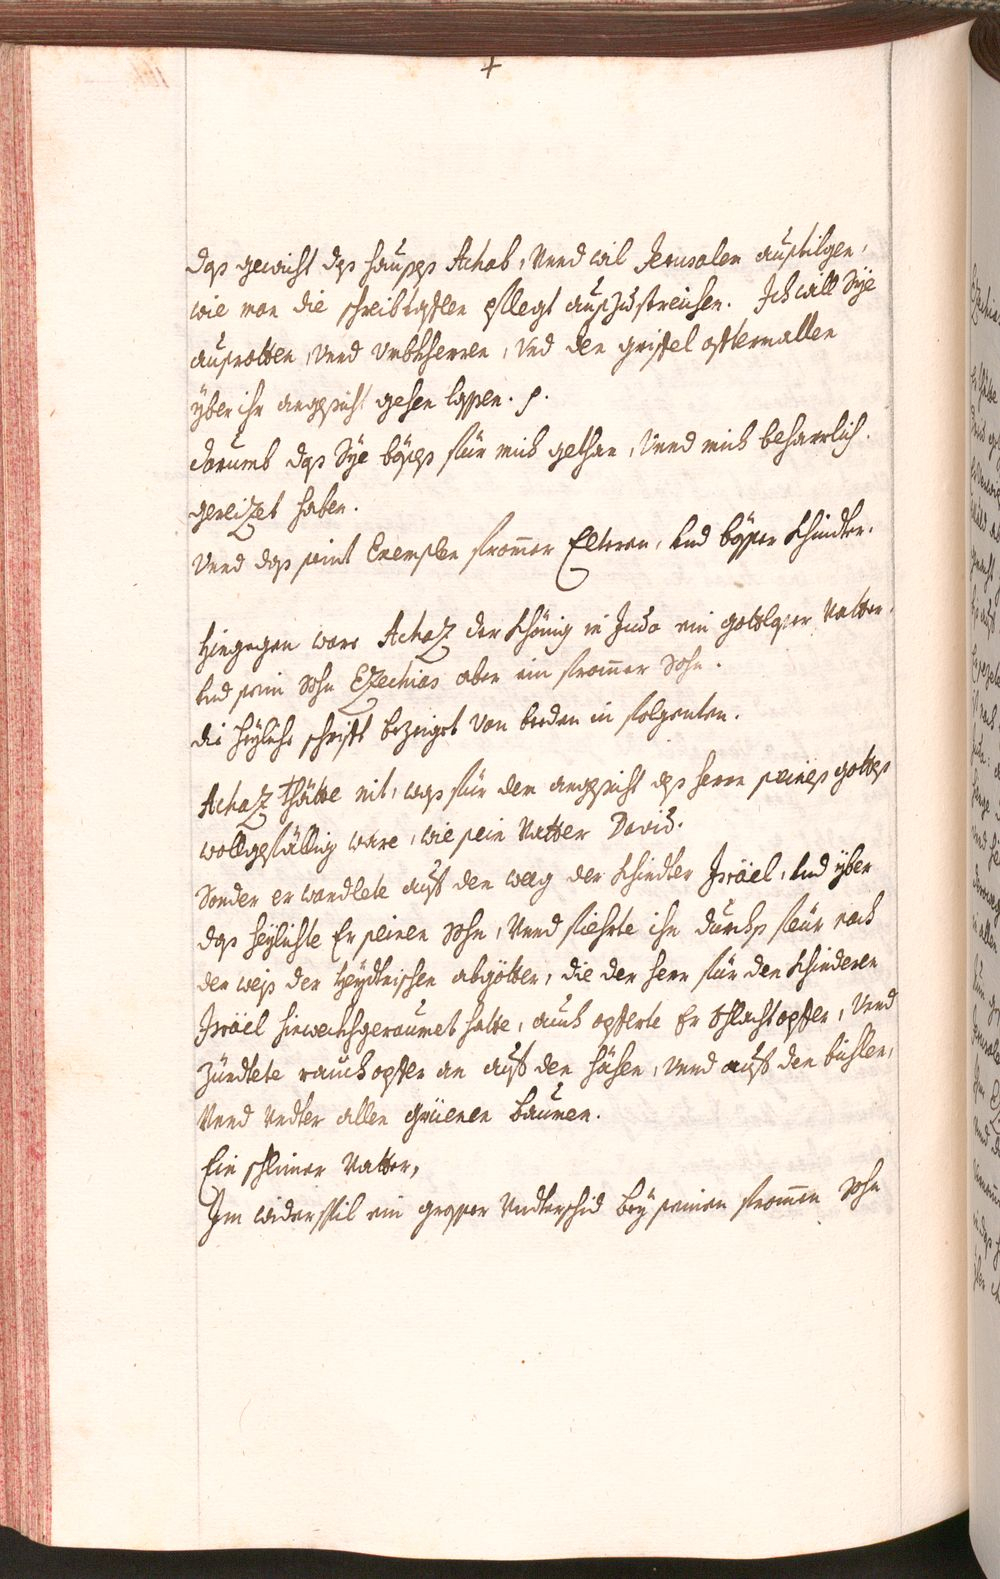 +
das gewicht des hauses Achab, Unnd wil Jerusalem austilgen,
wie man die schreibtafflen pflegt auszustreichen. Ich will Sÿe
ausrotten, Unnd Umbkherren, Und den griffel offtermallen
ÿber ihr angesicht gehen lassen. p.
darumb das Sÿe böses für mich gethan, Unnd mich beharrlich
gereizet haben.
Unnd das seint Exemplen frommer Elteren, Und bösser Khindter.
hingegen ware Achaz der Khönig in Juda ein gottloser Vatter,
Und sein Sohn Ezechias aber ein frommer Sohn.
die heÿlige schrifft bezeiget Von beeden in folgenten.
Achaz thätte nit, was für dem angesicht des herrn seines gottes
wollgefällig ware, wie sein Vatter David.
Sonder er wandlete auff den weeg der Khindter Jsräel, Und ÿber
das heÿlichte Er seinen Sohn, Unnd fiehrte ihn durchs feür nach
der weis der Heÿdtnischen abgötter, die der herr für den Khinderen
Jsräel hinwekhgeraumet hatte, auch opfferte Er schlachtopffer, Unnd
zündtete rauchopffer an auff den höhen, Unnd auff den bühlen,
Unnd Undter allen grüenen baumen.
Ein schlimer Vatter,
Im widerspil ein grosser Undterschid beÿ seinen frommen Sohn